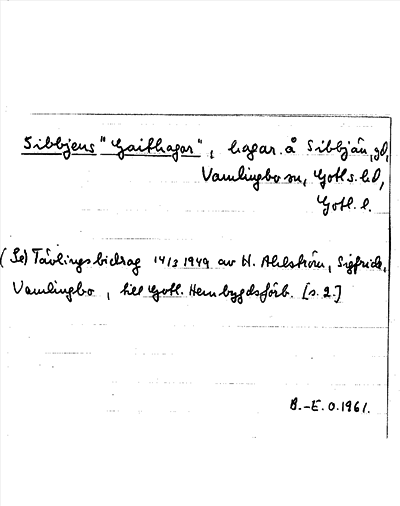 Sibbjens "Gaithagar", hagar å Sibbjän, gd,
Vamlingbo sn, Gotl s. hd,
Gotl. l.
(Se) Tävlingsbidrag 14/3 1949 av H. Ahlström, Sigfride,
Vamlingbo, till Gotl. Hembygdsförb. [s. 2.]
B.-E.O. 1961.